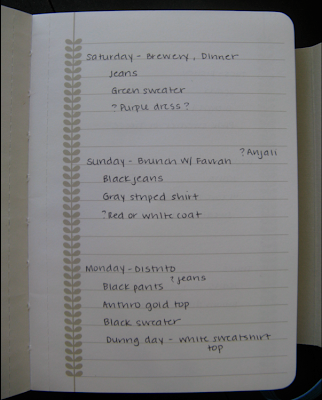 Saturday - Brewery, Dinner
Jeans
Green sweater
? Purple dress ?
? Anjali
Sunday - Brunch w/ Favian
Black jeans
Gray striped shirt
? Red or white coat
Monday - Distrito
? jeans
Black pants
Anthro gold top
Black sweater
During day - white sweatshirt
top